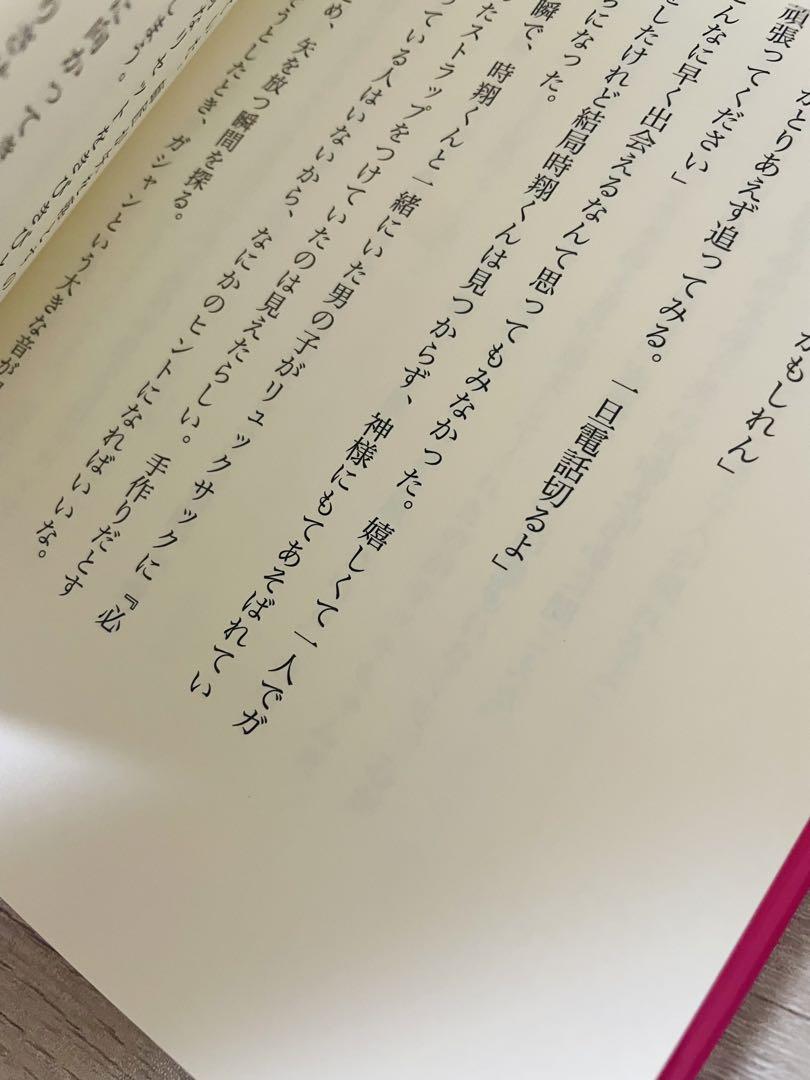 かもしれん」
がとりあえず追ってみる。一旦電話切るよ」
頑張ってください」
んなに早く出会えるなんて思ってもみなかった。嬉しくて一人でガ
をしたけれど結局時翔くんは見つからず、神様にもてあそばれてい
になった。
瞬で、時翔くんと一緒にいた男の子がリュックサックに『必
たストラップをつけていたのは見えたらしい。手作りだとす
っている人はいないから、なにかのヒントになればいいな。
め、矢を放つ瞬間を探る。
うとしたとき、ガシャンという大きな音が